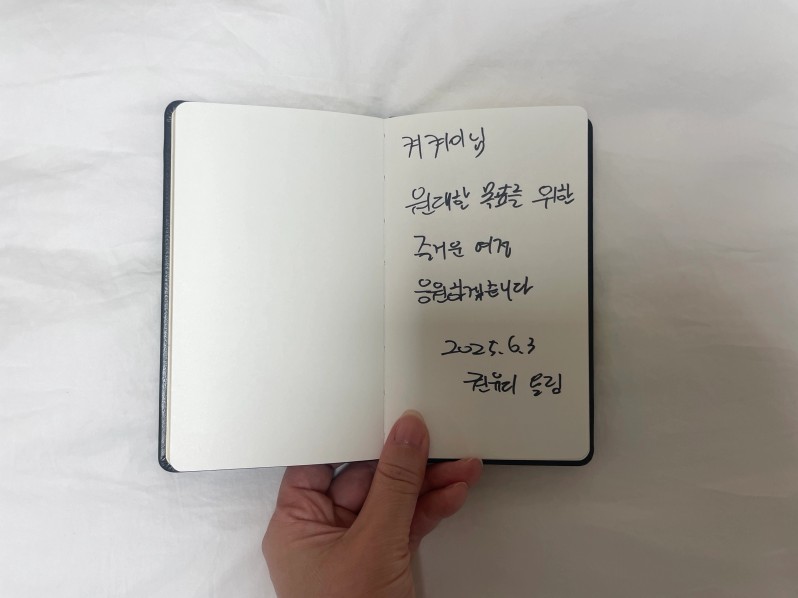 켜켜이님
원대한 목표를 위한
즐거운 여정
응원하겠습니다
2025.6.3
권유리 드림